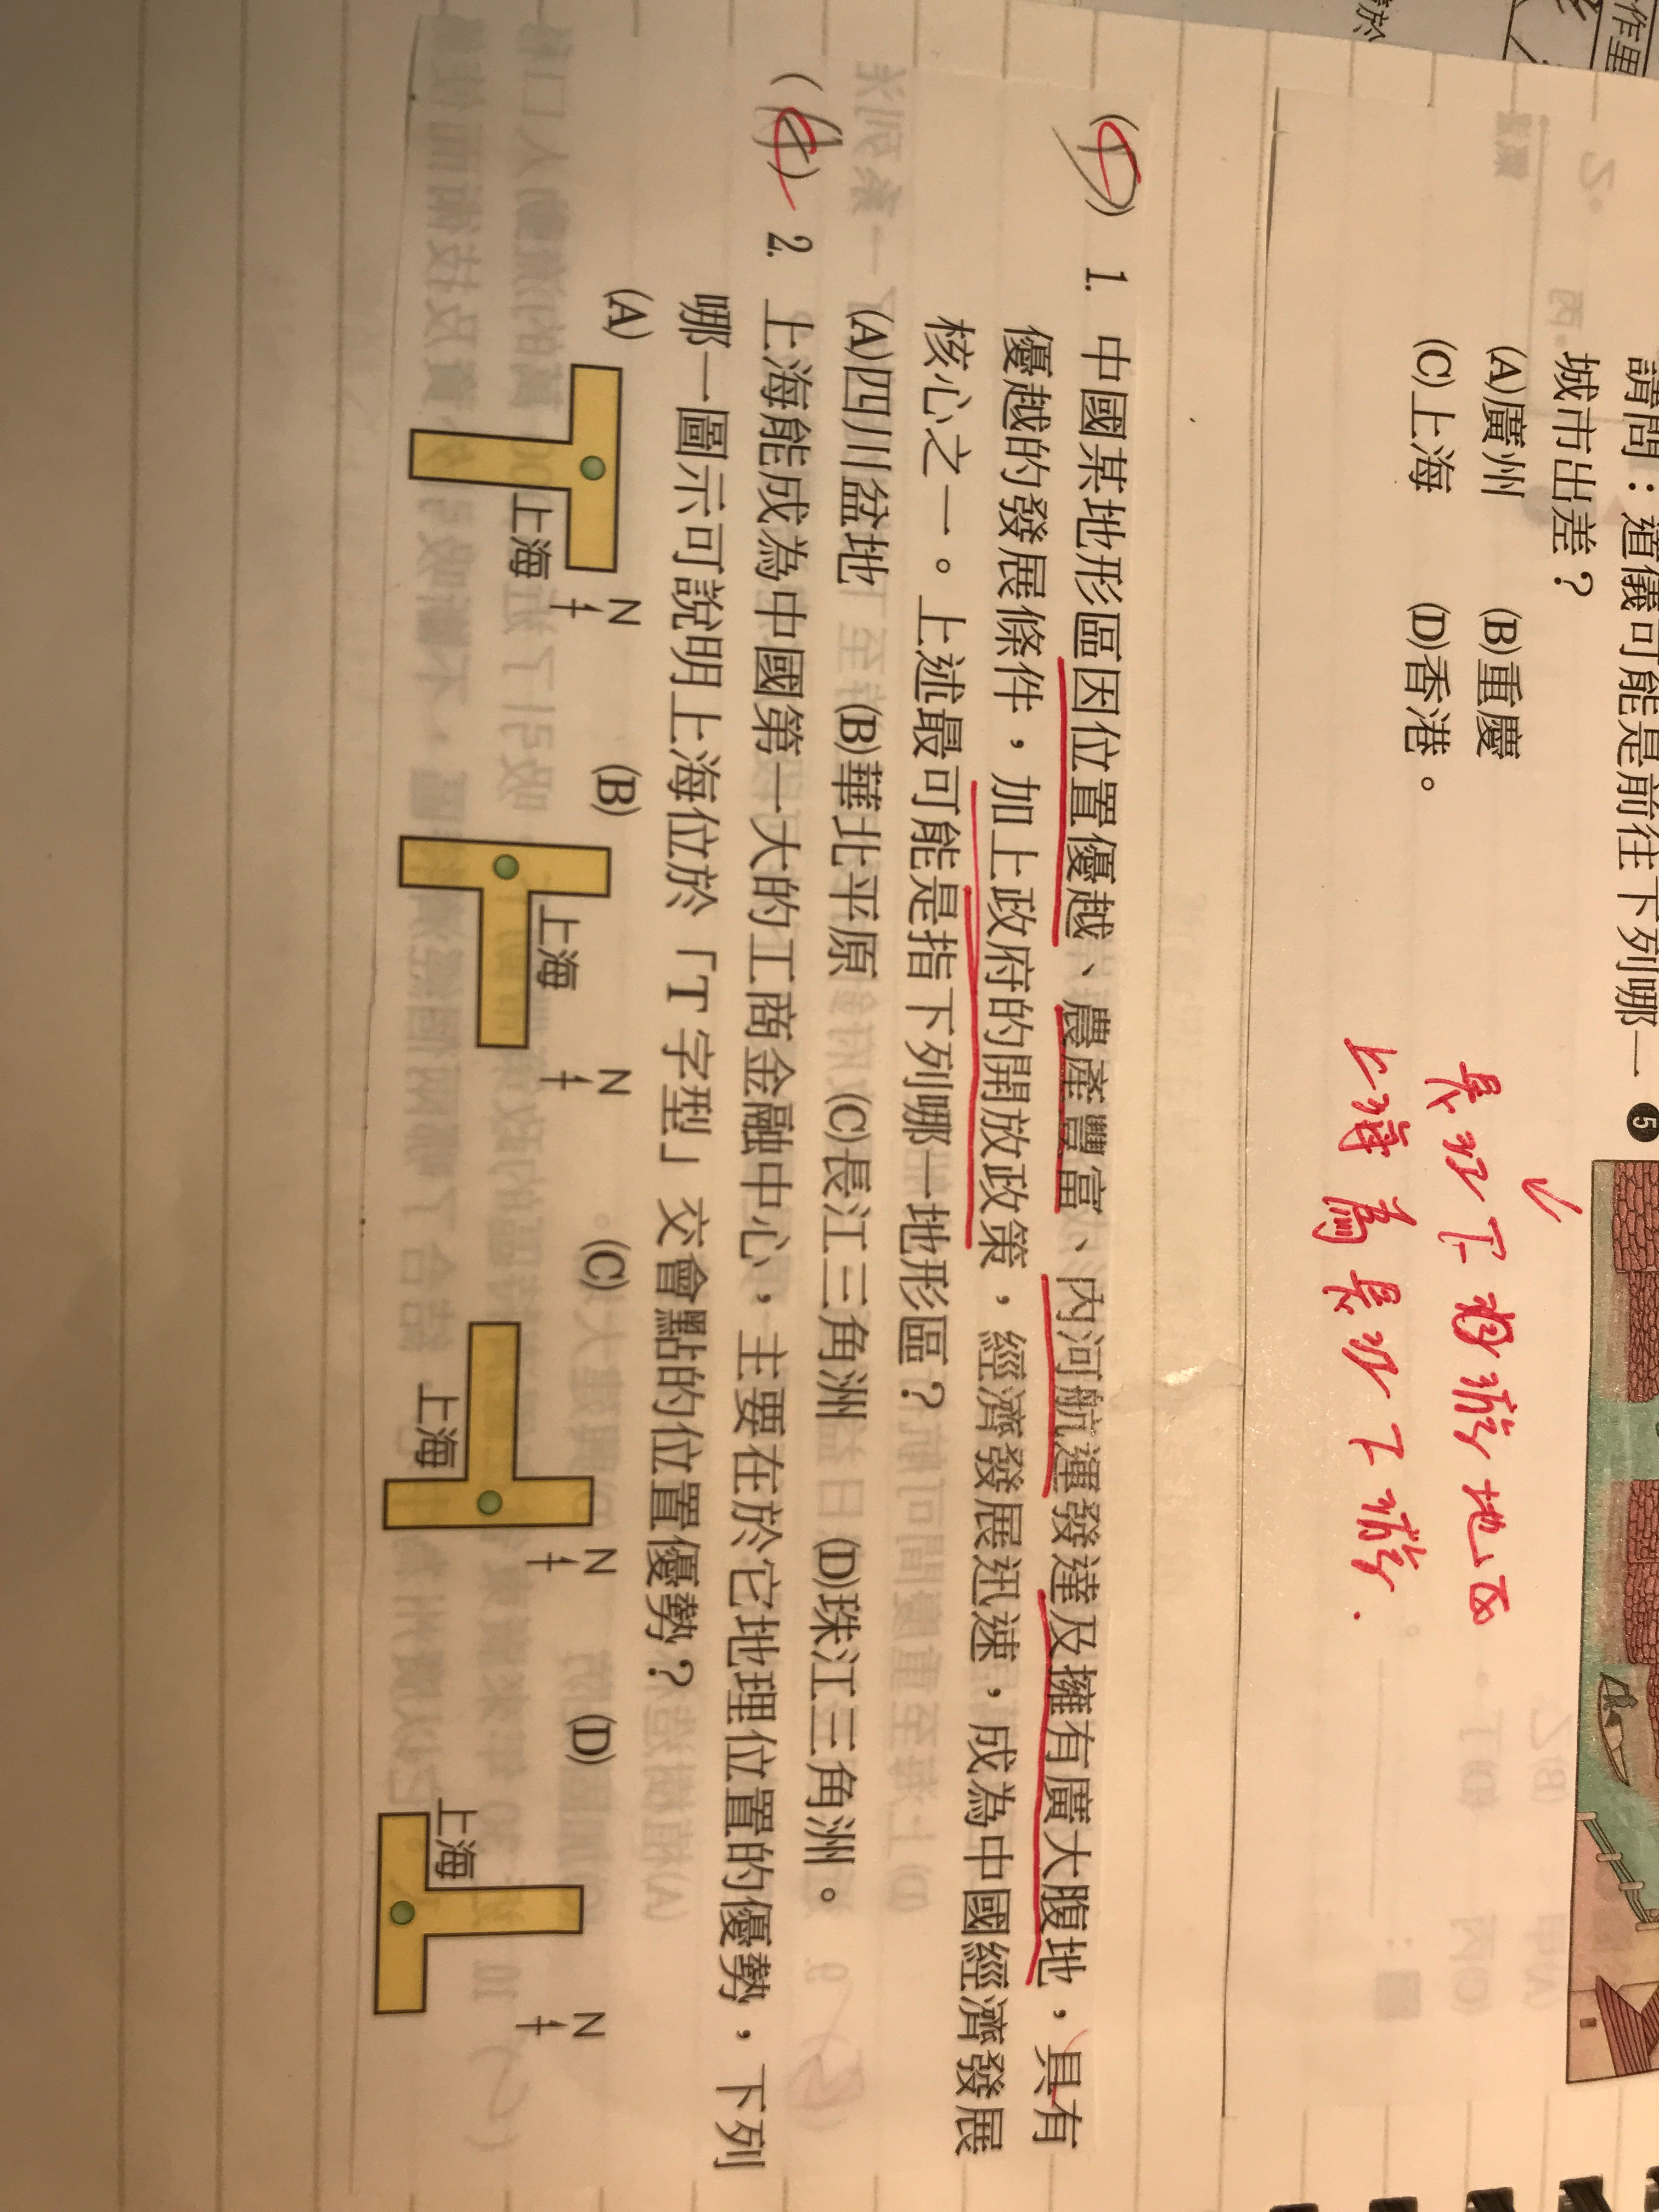 請問：道儀可能是前往下列哪一
城市出差？
(A)廣州 (B)重慶
(C)上海 (D)香港。
5
長江下游
上海 為 長江
1. 中國某地形區因位置優越、農產豐富、內河航運發達及擁有廣大腹地，具有
優越的發展條件，加上政府的開放政策，經濟發展迅速，成為中國經濟發展
核心之一。上述最可能是指下列哪一地形區？
(A)四川盆地 (B)華北平原 (C)長江三角洲 (D)珠江三角洲。
2. 上海能成為中國第一大的工商金融中心，主要在於它地理位置的優勢，下列
哪一圖示可說明上海位於「T字型」交會點的位置優勢？
(A) (B) (C) (D)
上海 上海 上海 上海
N N N N